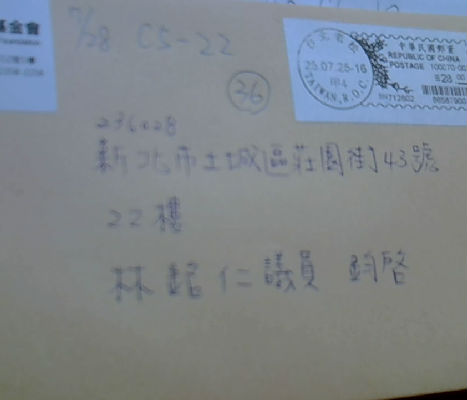 基金會
7/28 C5-22
中華民國郵票
REPUBLIC OF CHINA
POSTAGE
25.07.25-16
TAIWAN, R.O.C.
28
36
236028
新北市土城區莊園街43號
22樓
林銘仁議員 鈞啓